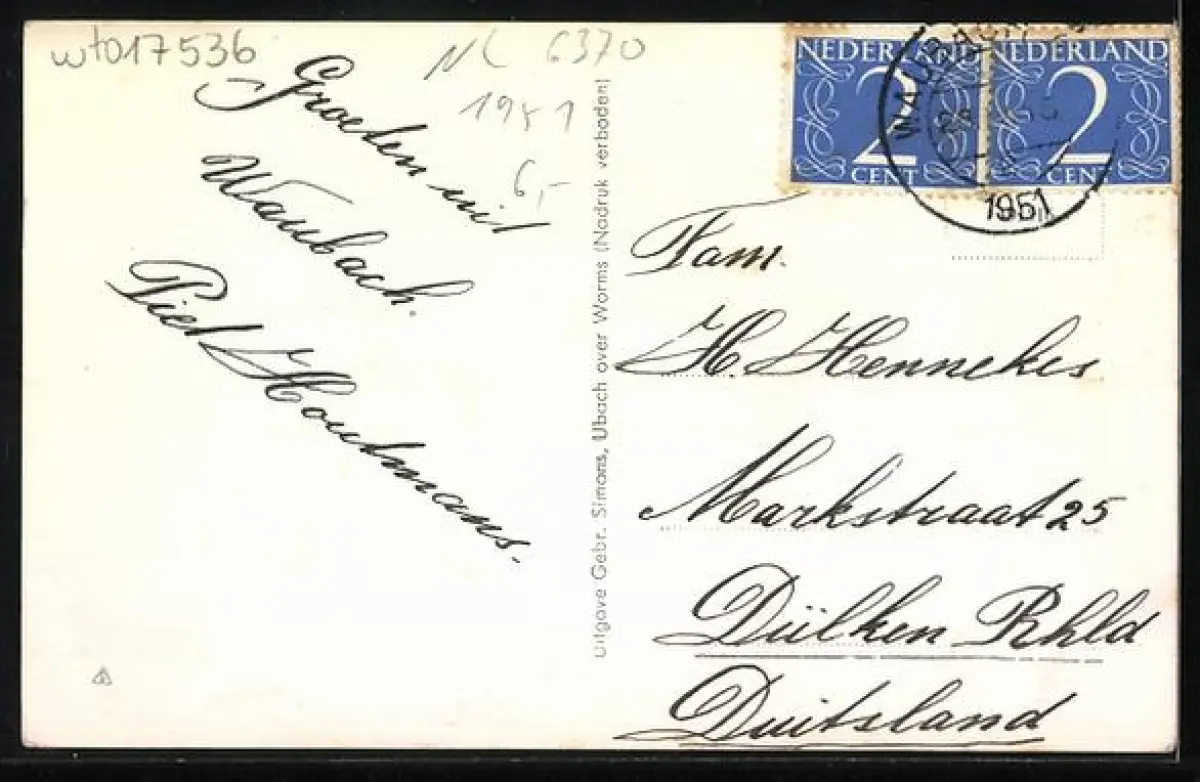 wto17536
NL 6370
1951
6,-
Groeten uit
Waubach.
Piet Houtmans.
Uitgave Gebr. Simons, Ubach over Worms (Nadruk verboden)
NEDERLAND
2
CENT
NEDERLAND
2
CENT
WAUBACH
1951
Fam.
H. Hennekes
Markstraat 25
Dülken Rhld
Duitsland